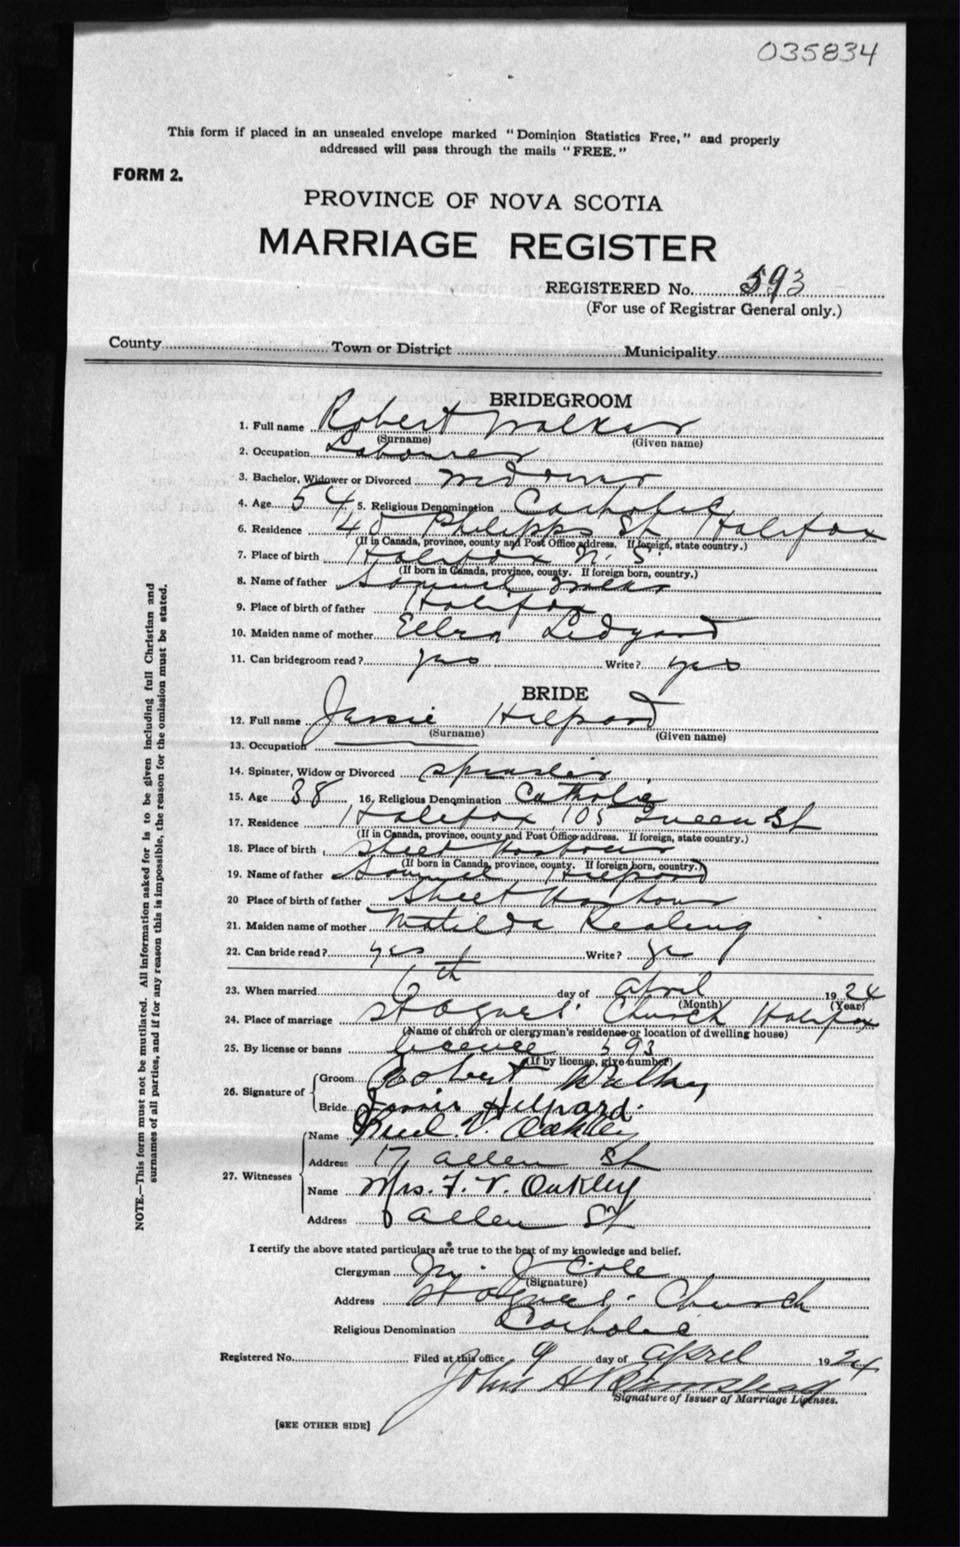 035834
This form if placed in an unsealed envelope marked "Dominion Statistics Free," and properly
addressed will pass through the mails "FREE."
FORM 2.
PROVINCE OF NOVA SCOTIA
MARRIAGE REGISTER
REGISTERED No. 593
(For use of Registrar General only.)
County Town or District Municipality
BRIDEGROOM
1. Full name Robert Walker
(Surname) (Given name)
2. Occupation Labourer
3. Bachelor, Widower or Divorced Widower
4. Age 54 5. Religious Denomination Catholic
6. Residence 40 Philipps St Halifax
(If in Canada, province, county and Post Office address. If foreign, state country.)
7. Place of birth Halifax N. S
(If born in Canada, province, county. If foreign born, country.)
8. Name of father Samuel Walker
9. Place of birth of father Halifax
10. Maiden name of mother Ellen Ledyard
11. Can bridegroom read? yes Write? yes
BRIDE
12. Full name Jessie Hilpard
(Surname) (Given name)
13. Occupation
14. Spinster, Widow or Divorced Spinster
15. Age 38 16, Religious Denomination Catholic
17. Residence Halifax 105 Queen St
(If in Canada, province, county and Post Office address. If foreign, state country.)
18. Place of birth Sheet Harbour
(If born in Canada, province, county. If foreign born, country.)
19. Name of father Samuel Hilpard
20 Place of birth of father Sheet Harbour
21. Maiden name of mother Matilda
22. Can bride read? yes Write? yes
23. When married 6th day of April 1924
(Month) (Year)
24. Place of marriage St Agnes Church Halifax
(Name of church or clergyman's residence or location of dwelling house)
25. By license or banns licence 593
(If by license, give number)
26. Signature of Groom Robert Walker
Bride Jessie Hilpard.
27. Witnesses Name V. Oakley
Address 17 Allen St
Name Mrs. F. V. Oakley
Address Allen St
I certify the above stated particulars are true to the best of my knowledge and belief.
Clergyman Cole
(Signature)
Address St Agnes Church
Religious Denomination Catholic
Registered No. Filed at this office 9 day of April 1924
John H
Signature of Issuer of Marriage Licenses.
[SEE OTHER SIDE]
NOTE.—This form must not be mutilated. All information asked for is to be given including full Christian and
surnames of all parties, and if for any reason this is impossible, the reason for the omission must be stated.